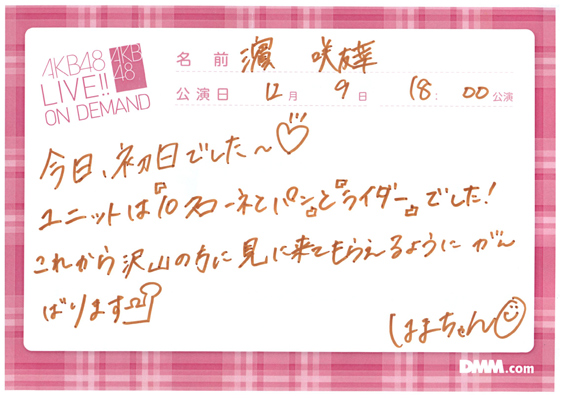 AKB48
LIVE!!
ON DEMAND
AKB
48
名前 濵 咲友菜
公演日 12月 9日 18:00公演
今日、初日でした〜♡
ユニットは『パジャマドライブ』でした!
これから沢山の方に見に来てもらえるように がん
ばります
はまちゃん
DMM.com